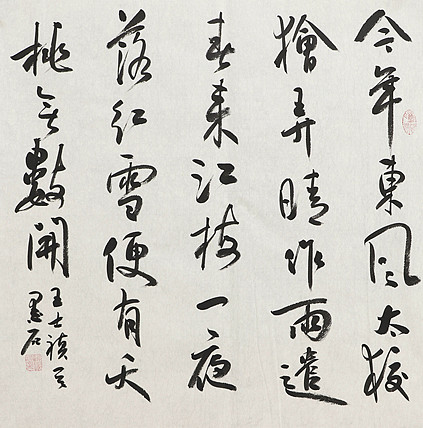 今年東風太狡
獪弄晴作雨遣
春來江梅一夜
落紅雪便有夭
桃無數開
王士禎
墨石